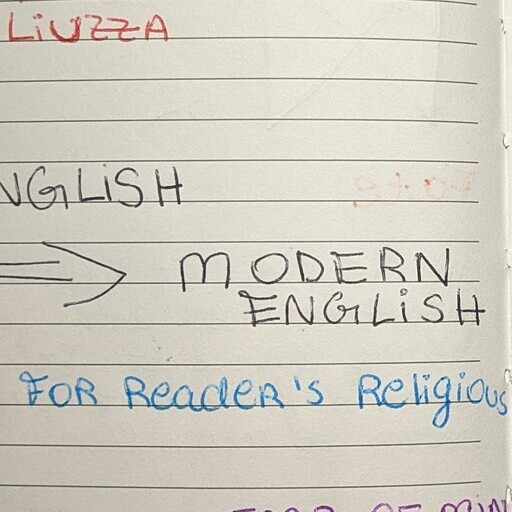 LiUZZA
NGLiSH
⇒ MODERN
ENGLiSH
FOR ReadeR's Religious